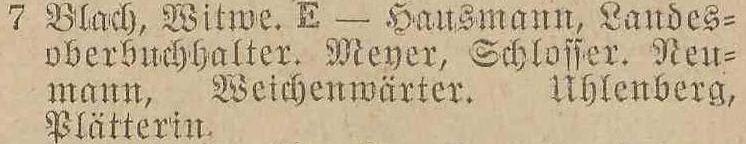 7 Blach, Witwe. E — Hausmann, Landes-
oberbuchhalter. Meyer, Schlosser. Neu-
mann, Weichenwärter. Uhlenberg,
Plätterin.